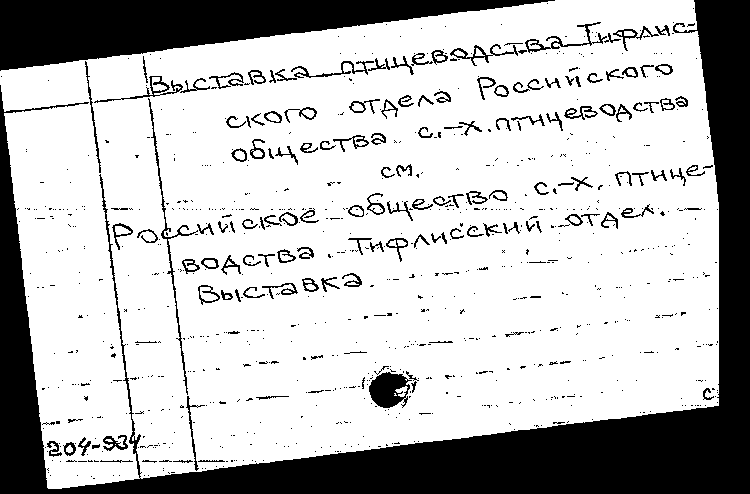 Выставка птицеводства Тифлис=
ского отдела Российского
общества с.-х. птицеводства
см.
Российское общество с.-х. птице-
водства. Тифлисский отдел.
Выставка.
с
204-934